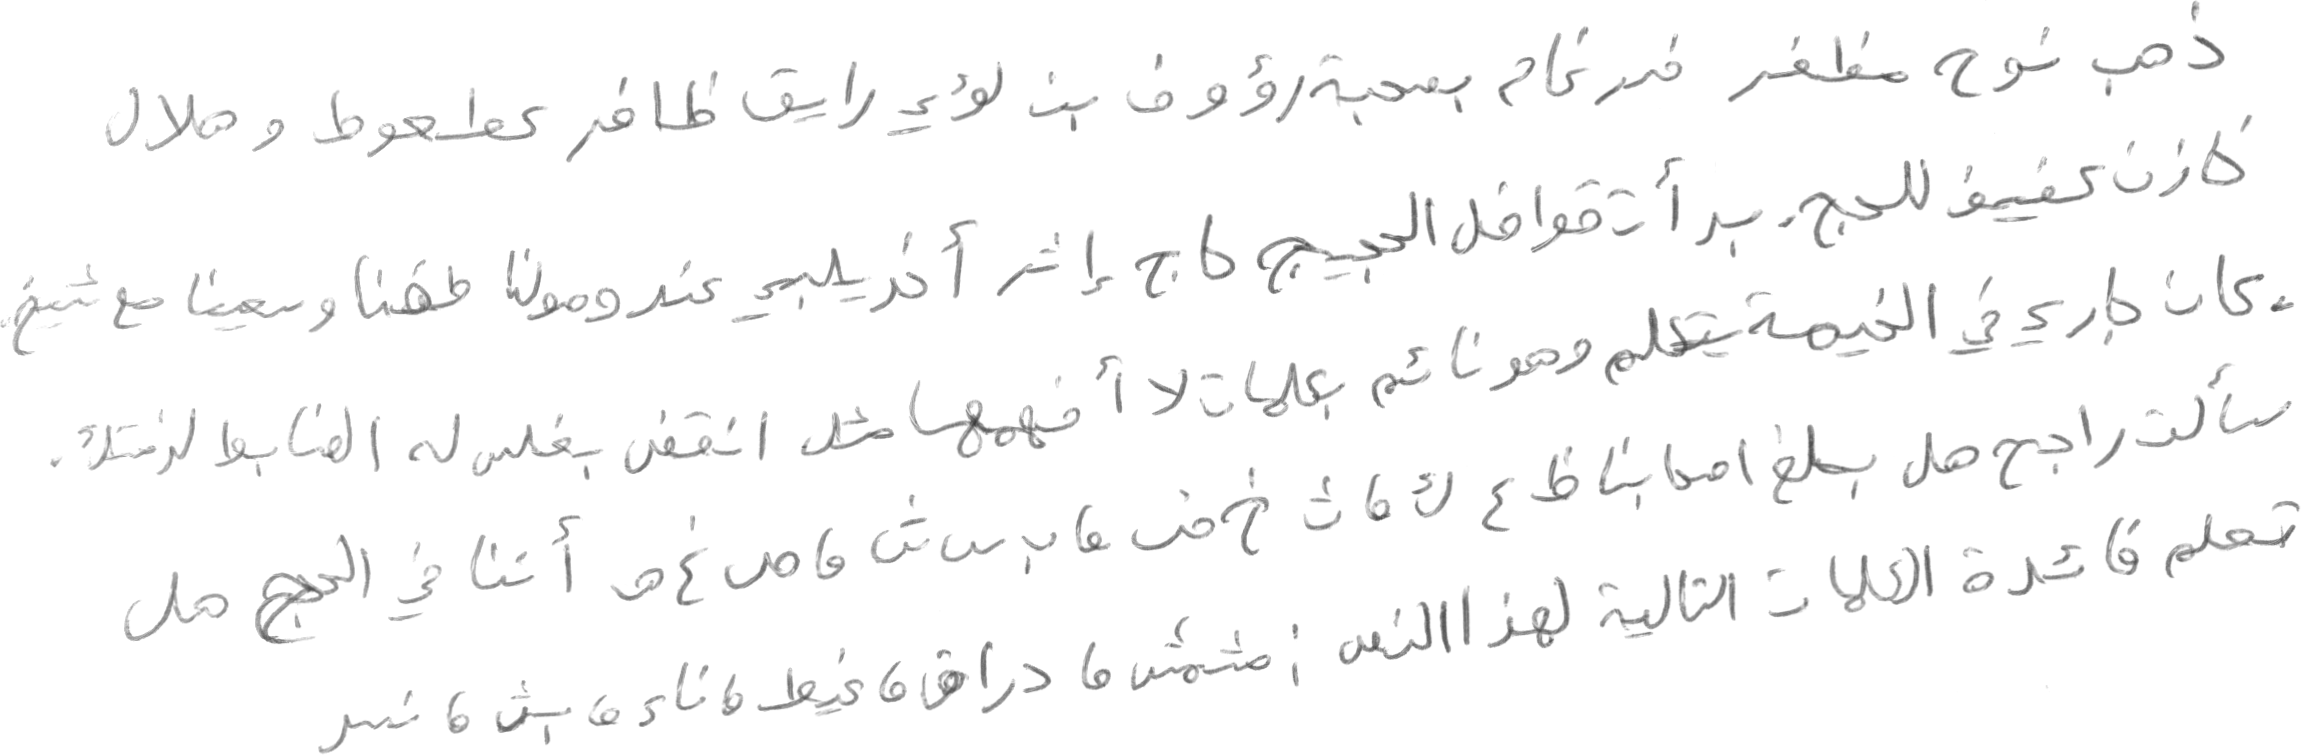 ذهب نوح مظفر ضرغام بصحبة رؤوف بن لؤي رايق ظافر عطعوط و هلال
كازن عفيف للحج. بدأت قوافل الحجيج كاج إثر أخذ يلبي عند وصولنا طفنا وسعينا مع شيخ.
. كان جاري في الخيمة يتكلم وهو نائم بكلمات لا أفهمها مثل انقض بغلس له الضابط لزمتك.
سألت راجح هل بلغ أصحابنا ظ ع ك ، ث خ ض ، ب س ش ، ص غ هـ أننا في الحج هل
تعلم فائدة الكلمات التالية لهذا النص : مشمش ، دراق ، غيظ ، ناء ، بش ، نسر